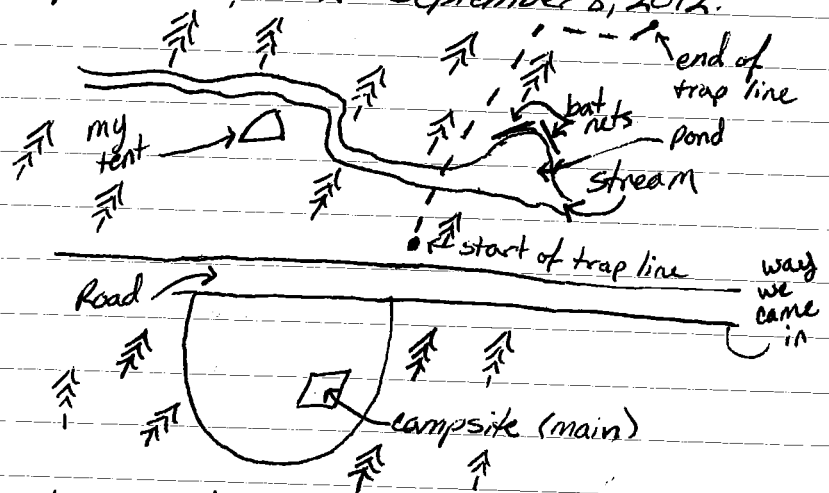 September 8, 2012.
end of
trap line
bat
nets
my
tent
pond
stream
start of trap line
Road
way
we
came
in
campsite (main)